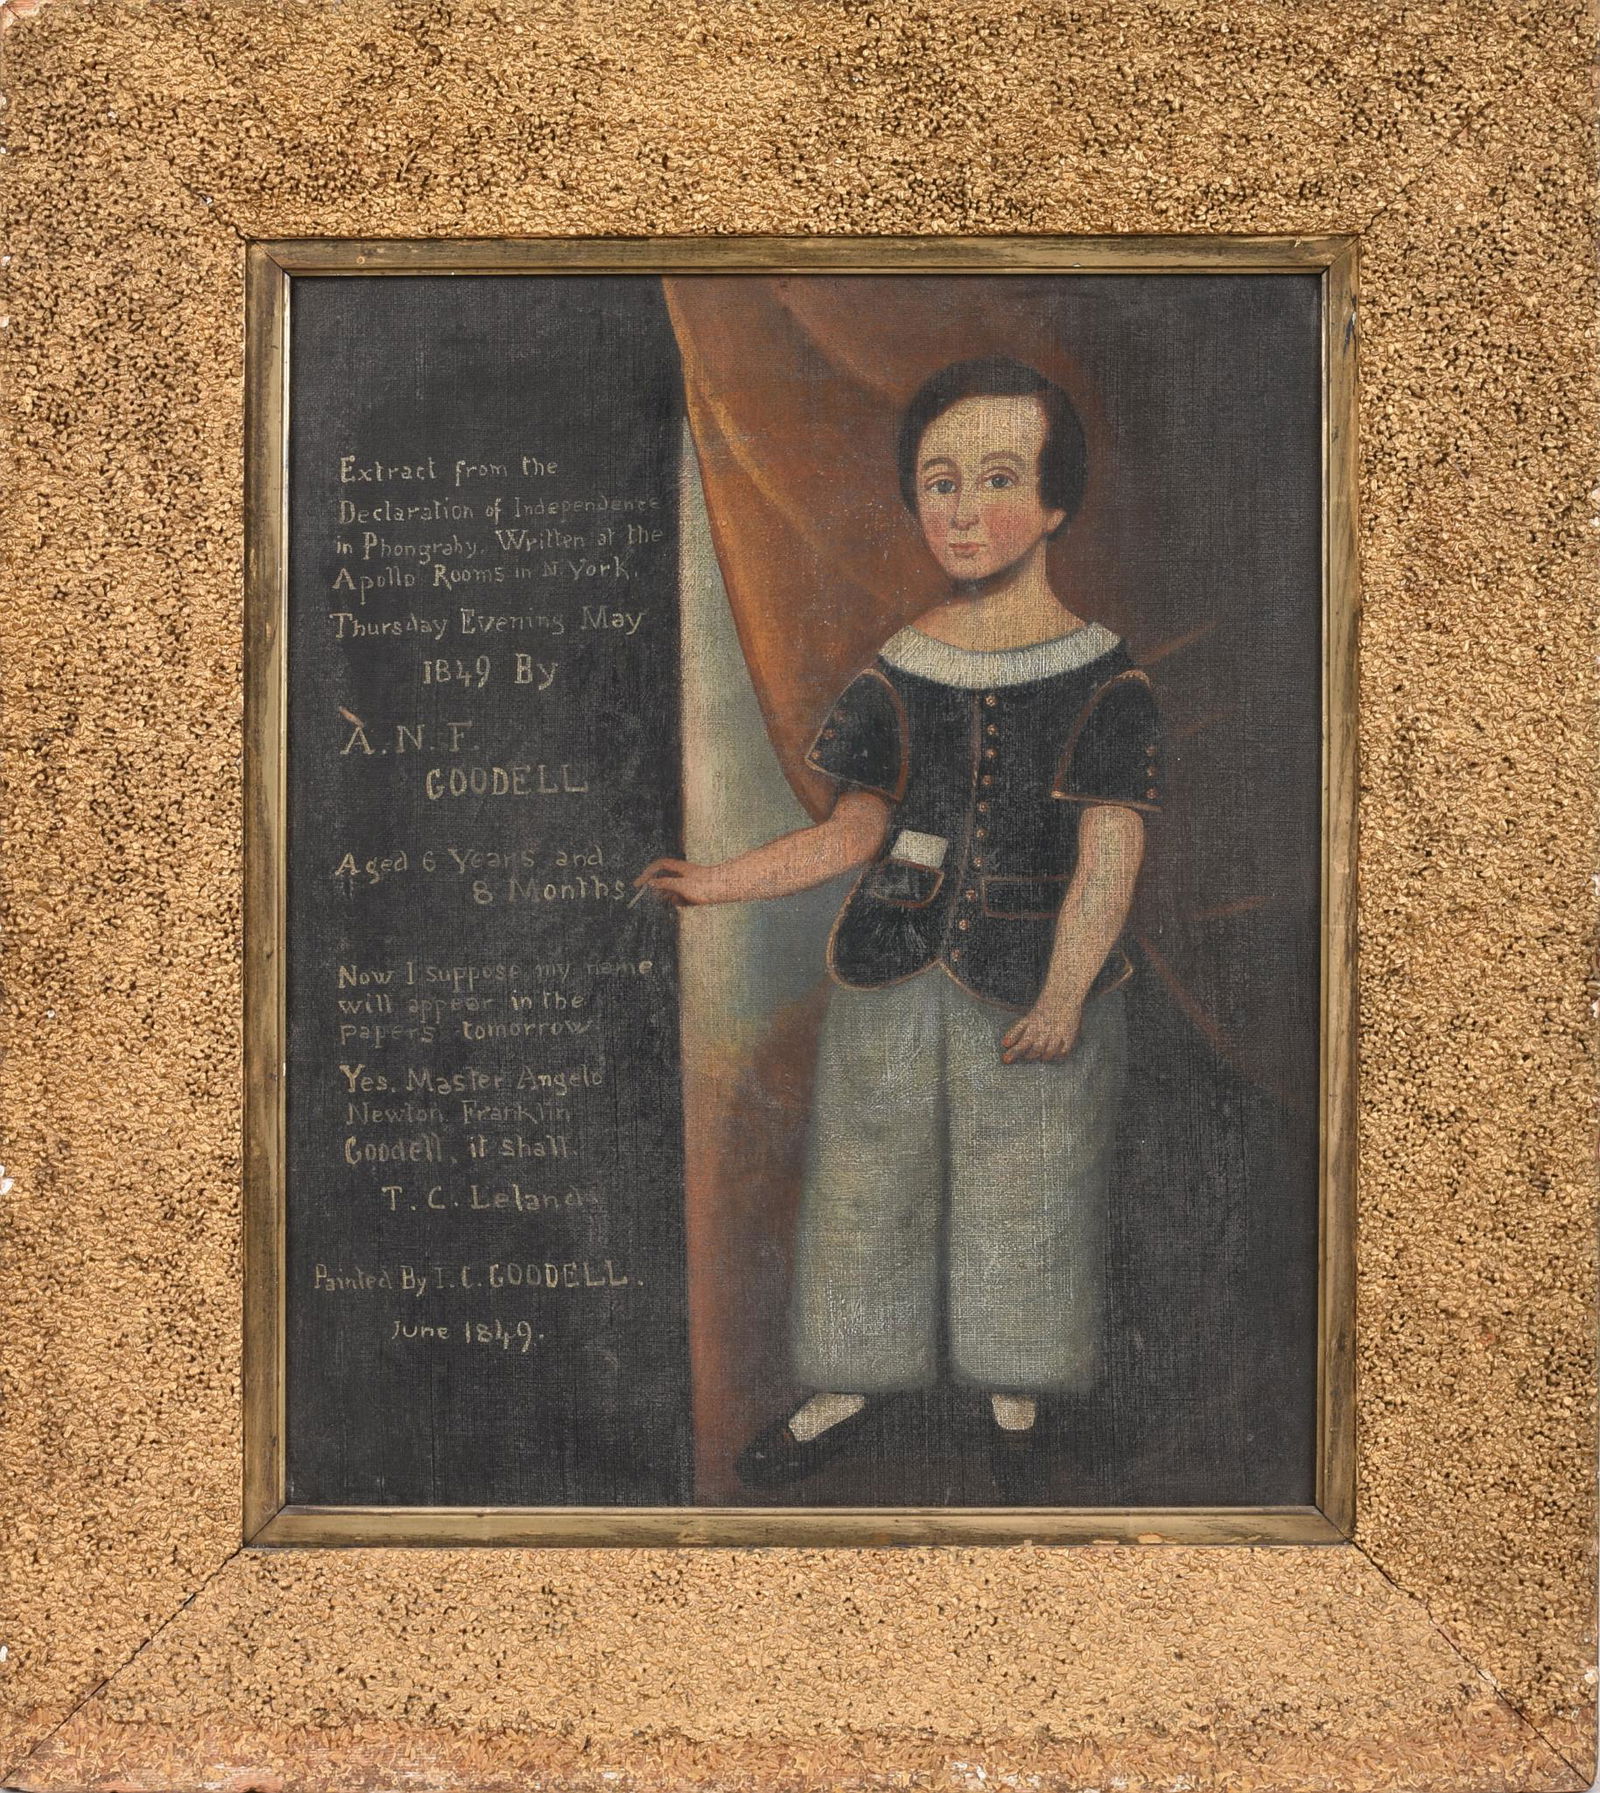 Extract from the
Declaration of Independence
in Phongraby. Written at the
Apollo Rooms in N. York.
Thursday Evening May
1849 By
A. N. F.
GOODELL
Aged 6 Years and
8 Months
Now I suppose my name
will appear in the
papers tomorrow
Yes. Master Angelo
Newton Franklin
Goodell, it shall.
T. C. Leland
Painted By I. C. GOODELL.
June 1849.